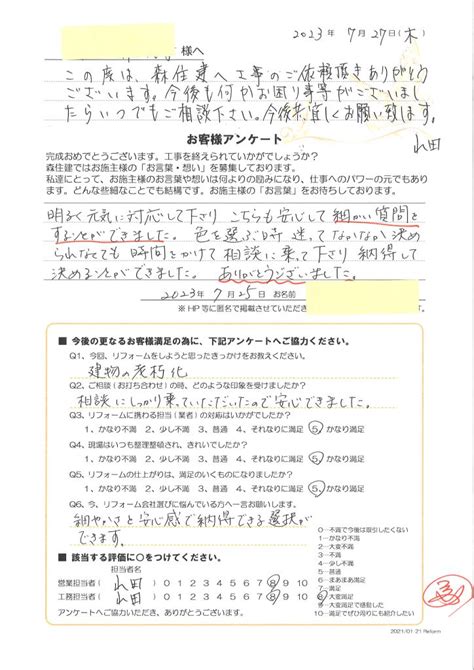 2023年7月27日(木)
様へ
この度は、森住建へ工事のご依頼頂きありがとう
ございます。今後も何かお困り事等がございまし
たらいつでもご相談下さい。今後共宜しくお願い致します。
山田
お客様アンケート
完成おめでとうございます。工事を終えられていかがでしょうか？
森住建ではお施主様の「お言葉・想い」を募集しております。
私達にとって、お施主様のお言葉や想いは何よりの励みになり、仕事へのパワーの元でもあり
ます。どんな些細なことでも結構です。お施主様の「お言葉」をお待ちしております。
明るく元気に対応して下さり こちらも安心して細かい質問を
することができました。色を選ぶ時 迷ってなかなか決め
られなくても 時間をかけて 相談に乗って下さり 納得して
決めることができました。ありがとうございました。
2023年 7月 25日 お名前
※HP等に匿名で掲載させていただき
■ 今後の更なるお客様満足の為に、下記アンケートへご協力ください。
Q1、今回、リフォームをしようと思ったきっかけをお教えください。
建物の老朽化
Q2、ご相談（お打ち合わせ）の時、どのような印象を受けましたか？
相談にしっかり乗っていただいたので安心できました。
Q3、リフォームに携わる担当（業者）の対応はいかがでしたか？
1、かなり不満 2、少し不満 3、普通 4、それなりに満足 5、かなり満足
Q4、現場はいつも整理整頓され、きれいでしたか？
1、かなり不満 2、少し不満 3、普通 4、それなりに満足 5、かなり満足
Q5、リフォームの仕上がりは、満足のいくものになりましたか？
1、かなり不満 2、少し不満 3、普通 4、それなりに満足 5、かなり満足
Q6、今、リフォーム会社選びに悩んでいる方へ一言お願いします。
細やかさと安心感で納得できる選択が
できます。
■ 該当する評価に○をつけてください。
担当者名
営業担当者（山田）0 1 2 3 4 5 6 7 8 9 10
工務担当者（山田）0 1 2 3 4 5 6 7 8 9 10
アンケートへご協力いただき、ありがとうございます。
0…不満で今後は取引したくない
1…かなり不満
2…大変不満
3…不満
4…少し不満
5…普通
6…まあまあ満足
7…満足
8…大変満足
9…大変満足で感動した
10…満足でぜひ周りにも紹介したい
2021/01/21 Reform